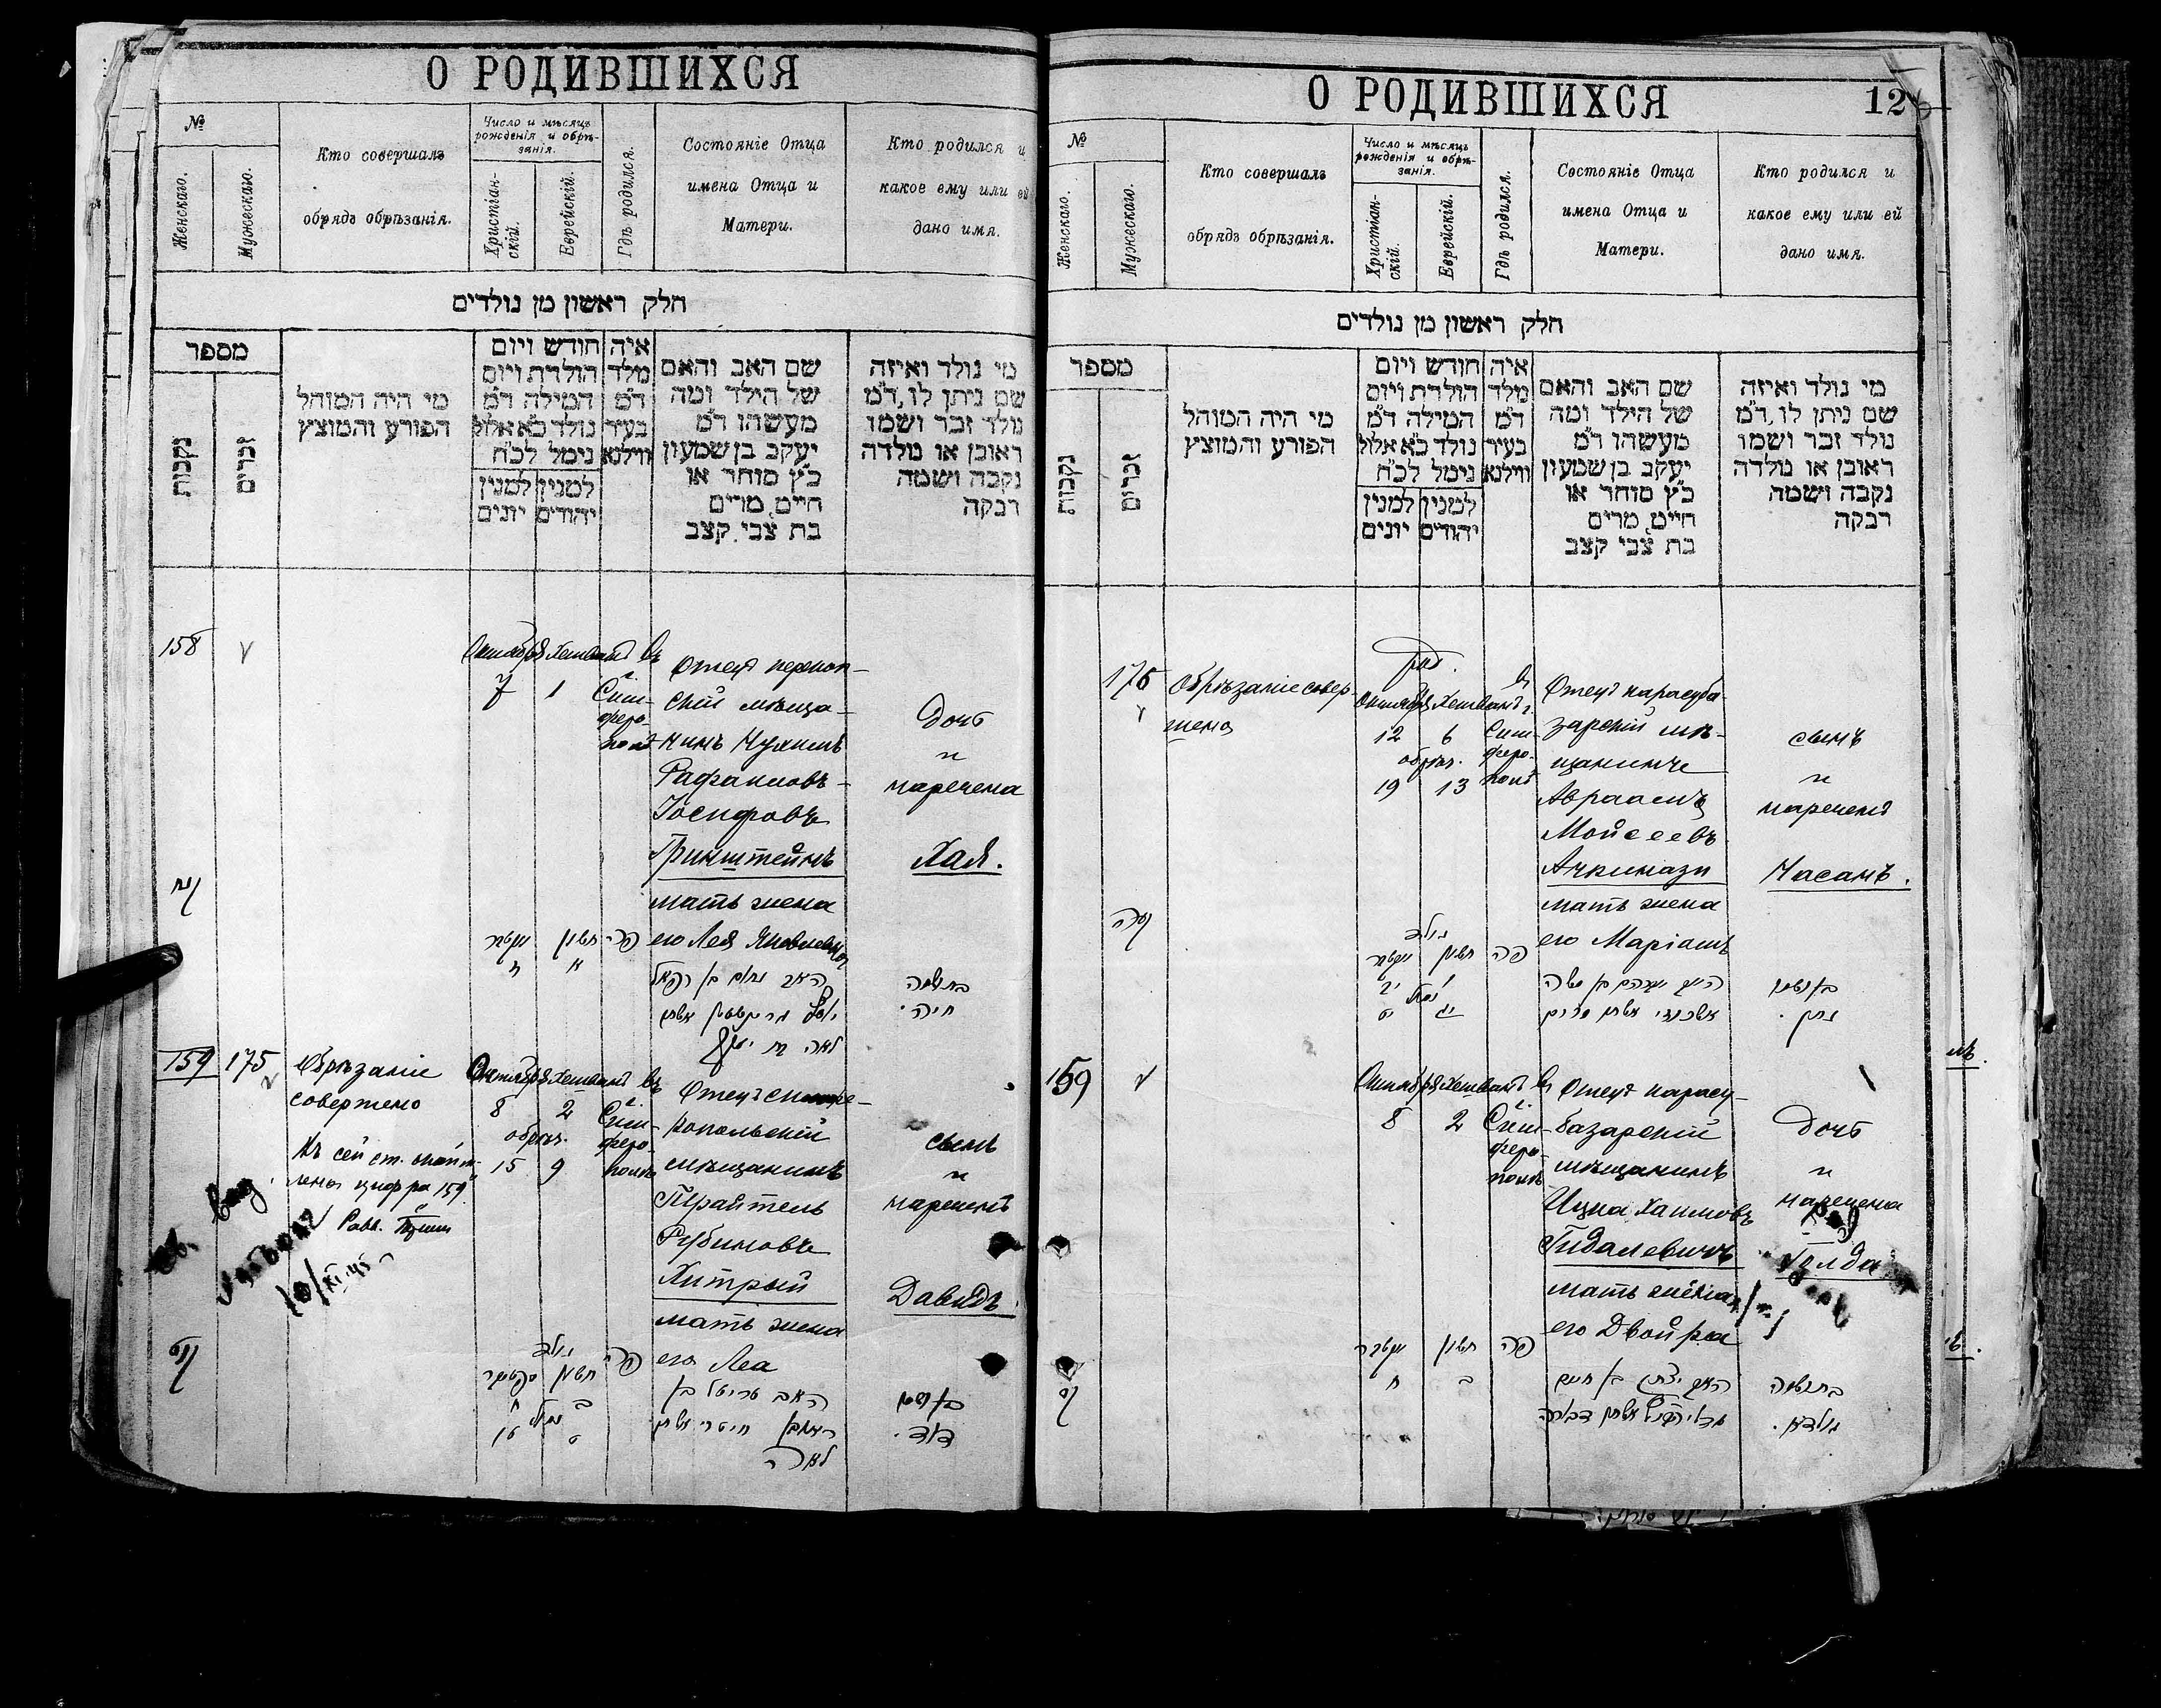 О РОДИВШИХСЯ
№
Женскаго.
Мужескаго.
Кто совершалъ
обрядъ обрѣзанія.
Число и мѣсяцъ
рожденія и обрѣ-
занія.
Христіан-
скій.
Еврейскій.
Гдѣ родился.
Состояніе Отца
имена Отца и
Матери.
Кто родился и
какое ему или ей
дано имя.
חלק ראשון מן נולדים
מספר
נקבות
זכרים
מי היה המוהל
הפורע והמוצץ
חודש ויום
הולדת ויום
המילה ד״מ
נולד כ״א אלול
נימל לכ״ח
למנין למנין
יהודים יונים
איה
מלד
ד״מ
בעיר
ווילנא
שם האב והאם
של הילד ומה
מעשהו ד״מ
יעקב בן שמעון
כ״ץ סוחר או
חייט, מרים
בת צבי קצב
מי נולד ואיזה
שם ניתן לו, ד״מ
נולד זכר ושמו
ראובן או נולדה
נקבה ושמה
רבקה
158
Октября Хешванъ въ
7 1 Сим-
феро-
полѣ
Отецъ перекоп-
скій мѣща-
нинъ Нухимъ
Рафаиловъ-
Іосифовъ
Гринштейнъ
мать жена
его Лея Яковлевна
Дочь
и
наречена
Хая.
חשון
פה
א
בת ושמה
חיה.
159 175
Обрѣзаніе
совершено
Къ сей ст.
цифра 159
Равв.
Октября Хешванъ въ
8 2 Сим-
обрѣз. феро-
15 9 полѣ
Отецъ симфе-
ропольскій
мѣщанинъ
Трайтель
Рубиновъ
Хитрый
мать жена
его Леа
сынъ
и
нареченъ
Давидъ.
נולד
חשון
פה
האב טרייטל בן
ראובן חיטרי
לאה
בן ושמו
דוד.
О РОДИВШИХСЯ
12
№
Женскаго.
Мужескаго.
Кто совершалъ
обрядъ обрѣзанія.
Число и мѣсяцъ
рожденія и обрѣ-
занія.
Христіан-
скій.
Еврейскій.
Гдѣ родился.
Состояніе Отца
имена Отца и
Матери.
Кто родился и
какое ему или ей
дано имя.
חלק ראשון מן נולדים
מספר
נקבות
זכרים
מי היה המוהל
הפורע והמוצץ
חודש ויום
הולדת ויום
המילה ד״מ
נולד כ״א אלול
נימל לכ״ח
למנין למנין
יהודים יונים
איה
מלד
ד״מ
בעיר
ווילנא
שם האב והאם
של הילד ומה
מעשהו ד״מ
יעקב בן שמעון
כ״ץ סוחר או
חייט, מרים
בת צבי קצב
מי נולד ואיזה
שם ניתן לו, ד״מ
נולד זכר ושמו
ראובן או נולדה
נקבה ושמה
רבקה
176
Обрѣзаніе совер-
шено
рож.
Октября Хешванъ въ г.
12 6 Сим-
обрѣз. феро-
19 13 полѣ
Отецъ карасуба-
зарскій мѣ-
щанинъ
Авраамъ
Мойсеевъ
Ачкинази
мать жена
его Маріамъ
сынъ
и
нареченъ
Насанъ.
נולד
חשון
פה
האב אברהם בן משה
אשכנזי אשתו מרים
בן ושמו
נתן.
159
Октября Хешванъ въ
8 2 Сим-
феро-
полѣ
Отецъ карасу-
базарскій
мѣщанинъ
Ицка Хаимовъ
Гидалевичъ
мать жена
его Двойра
Дочь
и
наречена
Голда
חשון
פה
ב
ח
האב יצחק בן חיים
אשתו דבורה
בת ושמה
גולדא.